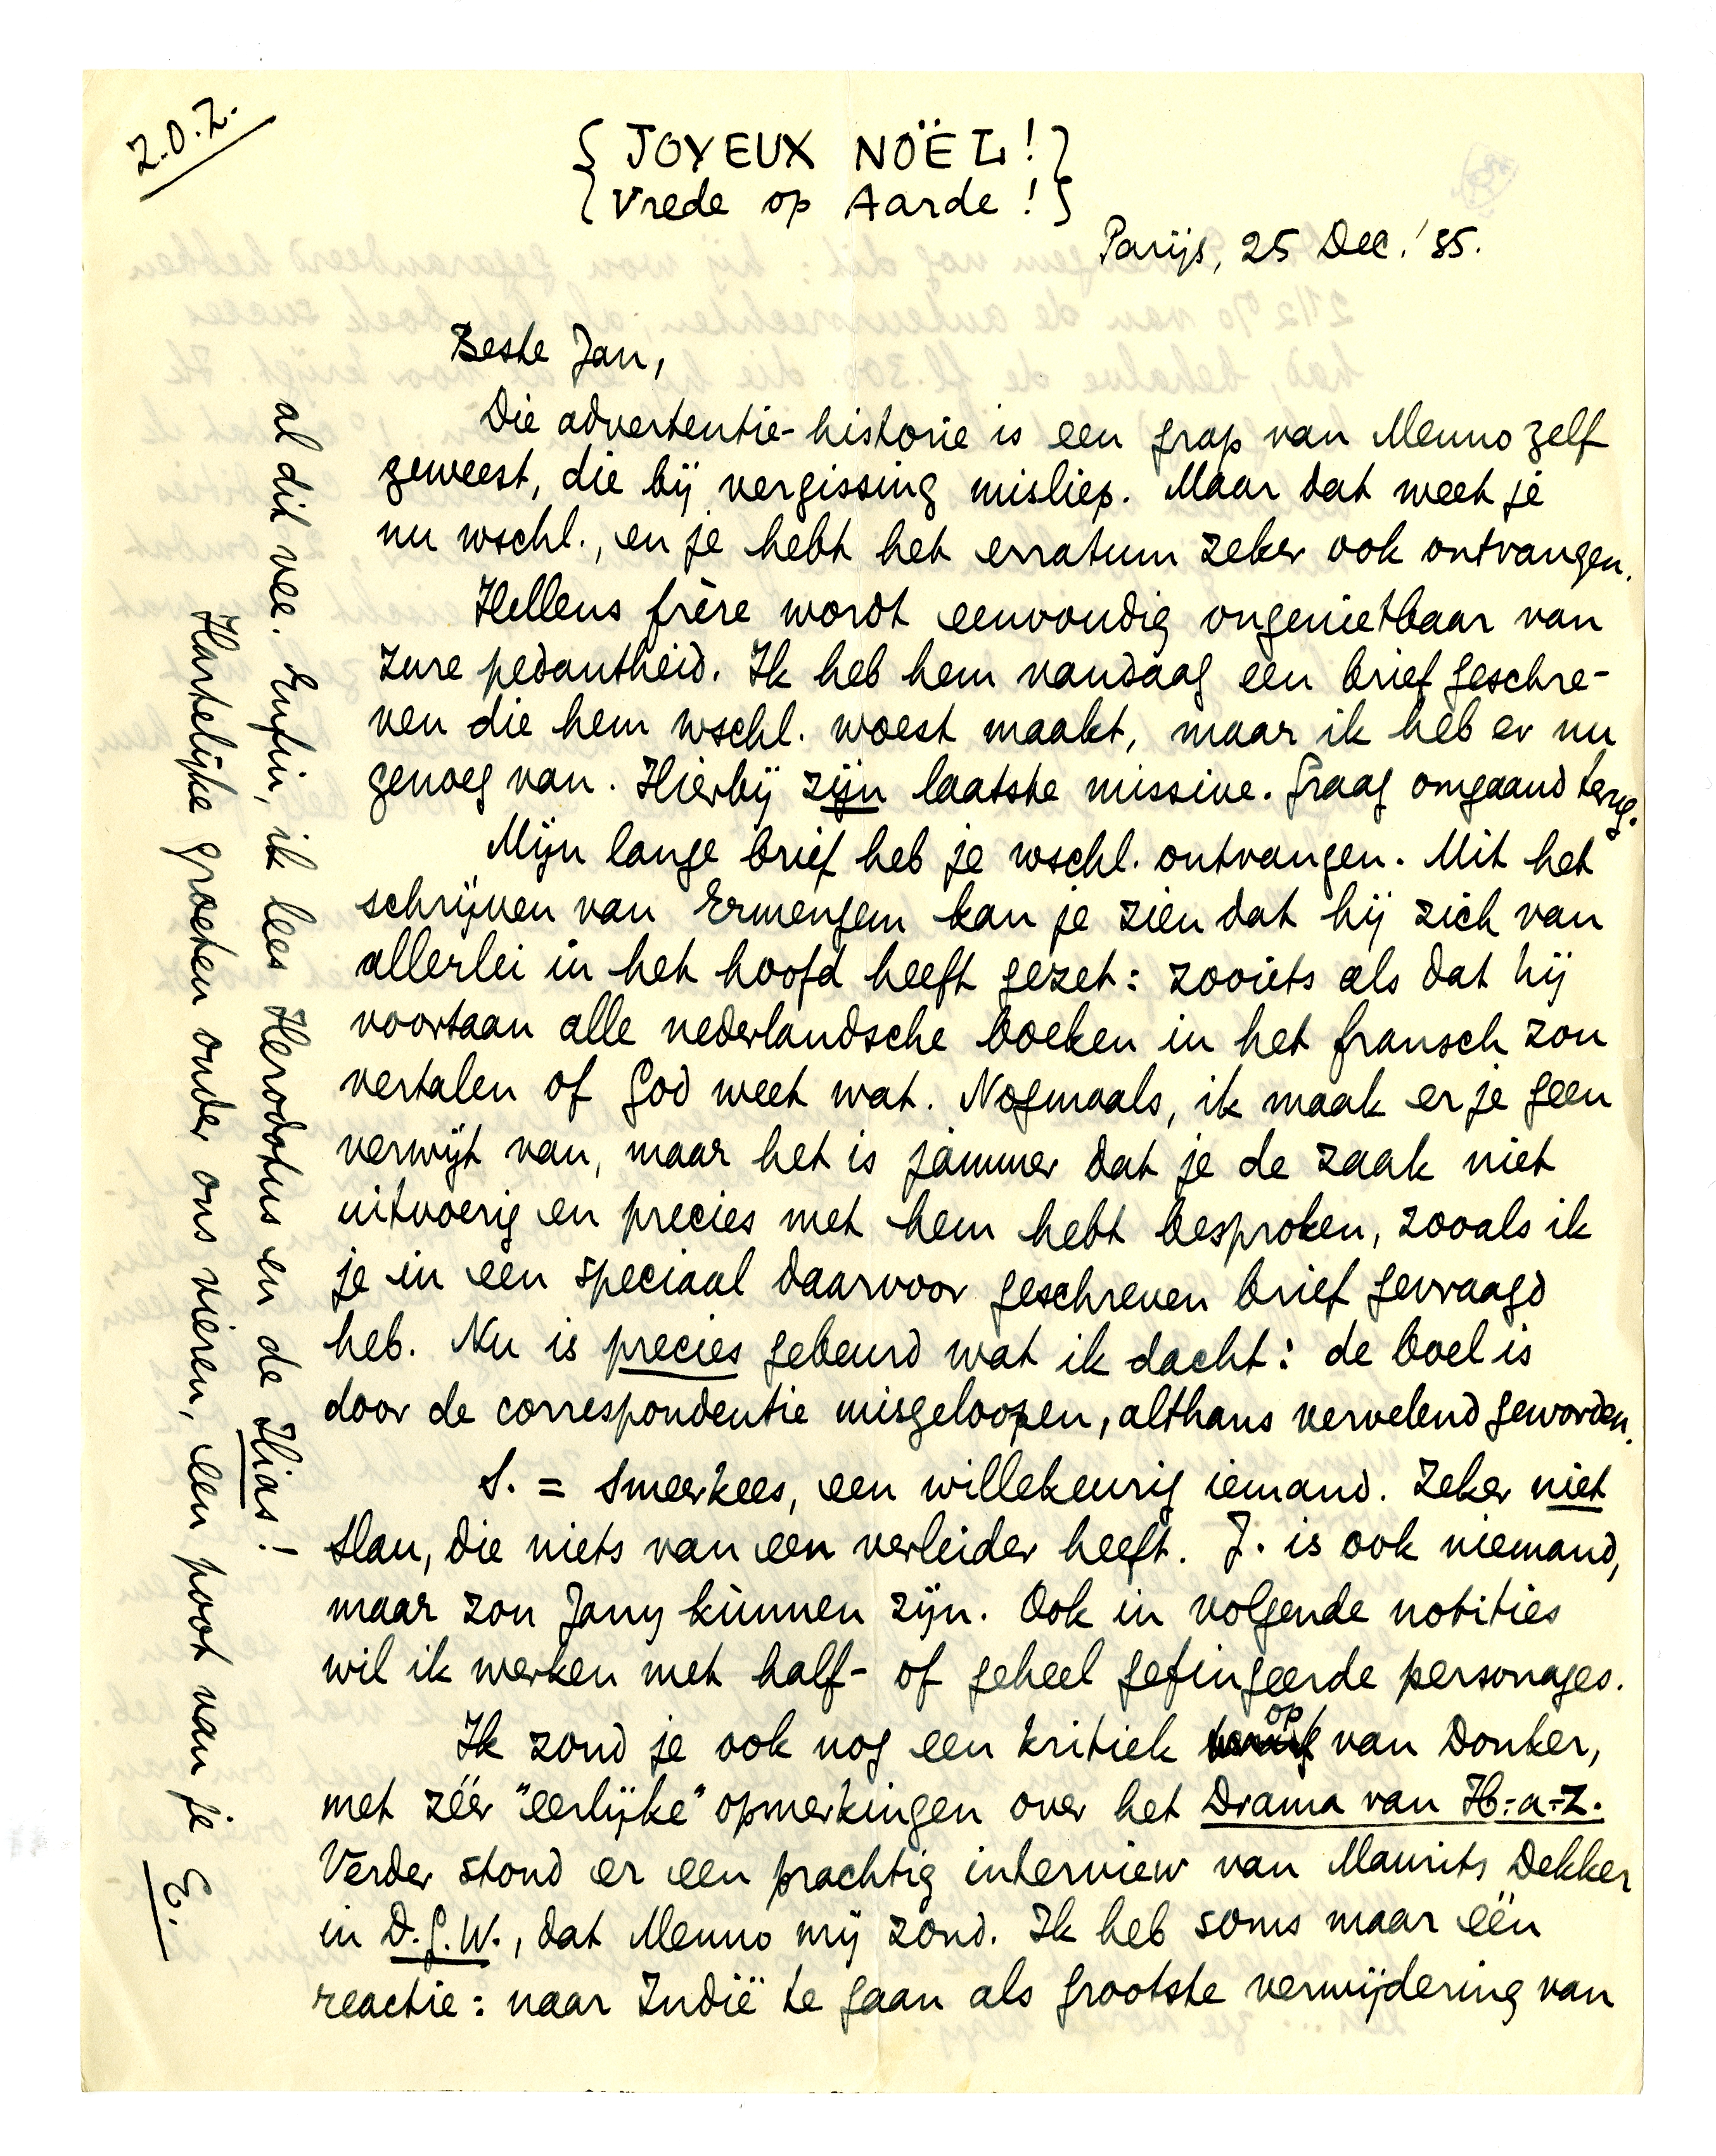 Z.O.Z.
{JOYEUX NOËL!}
{Vrede op Aarde!}
Parijs, 25 Dec. '35.
Beste Jan,
Die advertentie-historie is een grap van Menno zelf
geweest, die bij vergissing misliep. Maar dat weet je
nu wschl., en je hebt het erratum zeker ook ontvangen.
Hellens frère wordt eenvoudig ongenietbaar van
zure pedantheid. Ik heb hem vandaag een brief geschre-
ven die hem wschl. woest maakt, maar ik heb er nu
genoeg van. Hierbij zijn laatste missive. Graag omgaand terug.
Mijn lange brief heb je wschl. ontvangen. Uit het
schrijven van Ermengem kan je zien dat hij zich van
allerlei in het hoofd heeft gezet: zooiets als dat hij
voortaan alle nederlandsche boeken in het fransch zou
vertalen of God weet wat. Nogmaals, ik maak er je geen
verwijt van, maar het is jammer dat je de zaak niet
uitvoerig en precies met hem hebt besproken, zooals ik
je in een speciaal daarvoor geschreven brief gevraagd
heb. Nu is precies gebeurd wat ik dacht: de boel is
door de correspondentie misgeloopen, althans vervelend geworden.
S. = Smeerkees, een willekeurig iemand. Zeker niet
Slau, die niets van een verleider heeft. J. is ook niemand,
maar zou Jany kùnnen zijn. Ook in volgende notities
wil ik werken met half- of geheel gefingeerde personages.
Ik zond je ook nog een kritiek op van Donker,
met zéér "eerlijke" opmerkingen over het Drama van H.-a.-Z.
Verder stond er een prachtig interview van Maurits Dekker
in D.G.W., dat Menno mij zond. Ik heb soms maar één
reactie: naar Indië te gaan als grootste verwijdering van
al dit vee. Enfin, ik lees Herodotus en de Ilias!
Hartelijke groeten onder ons vieren, een poot van je
E.